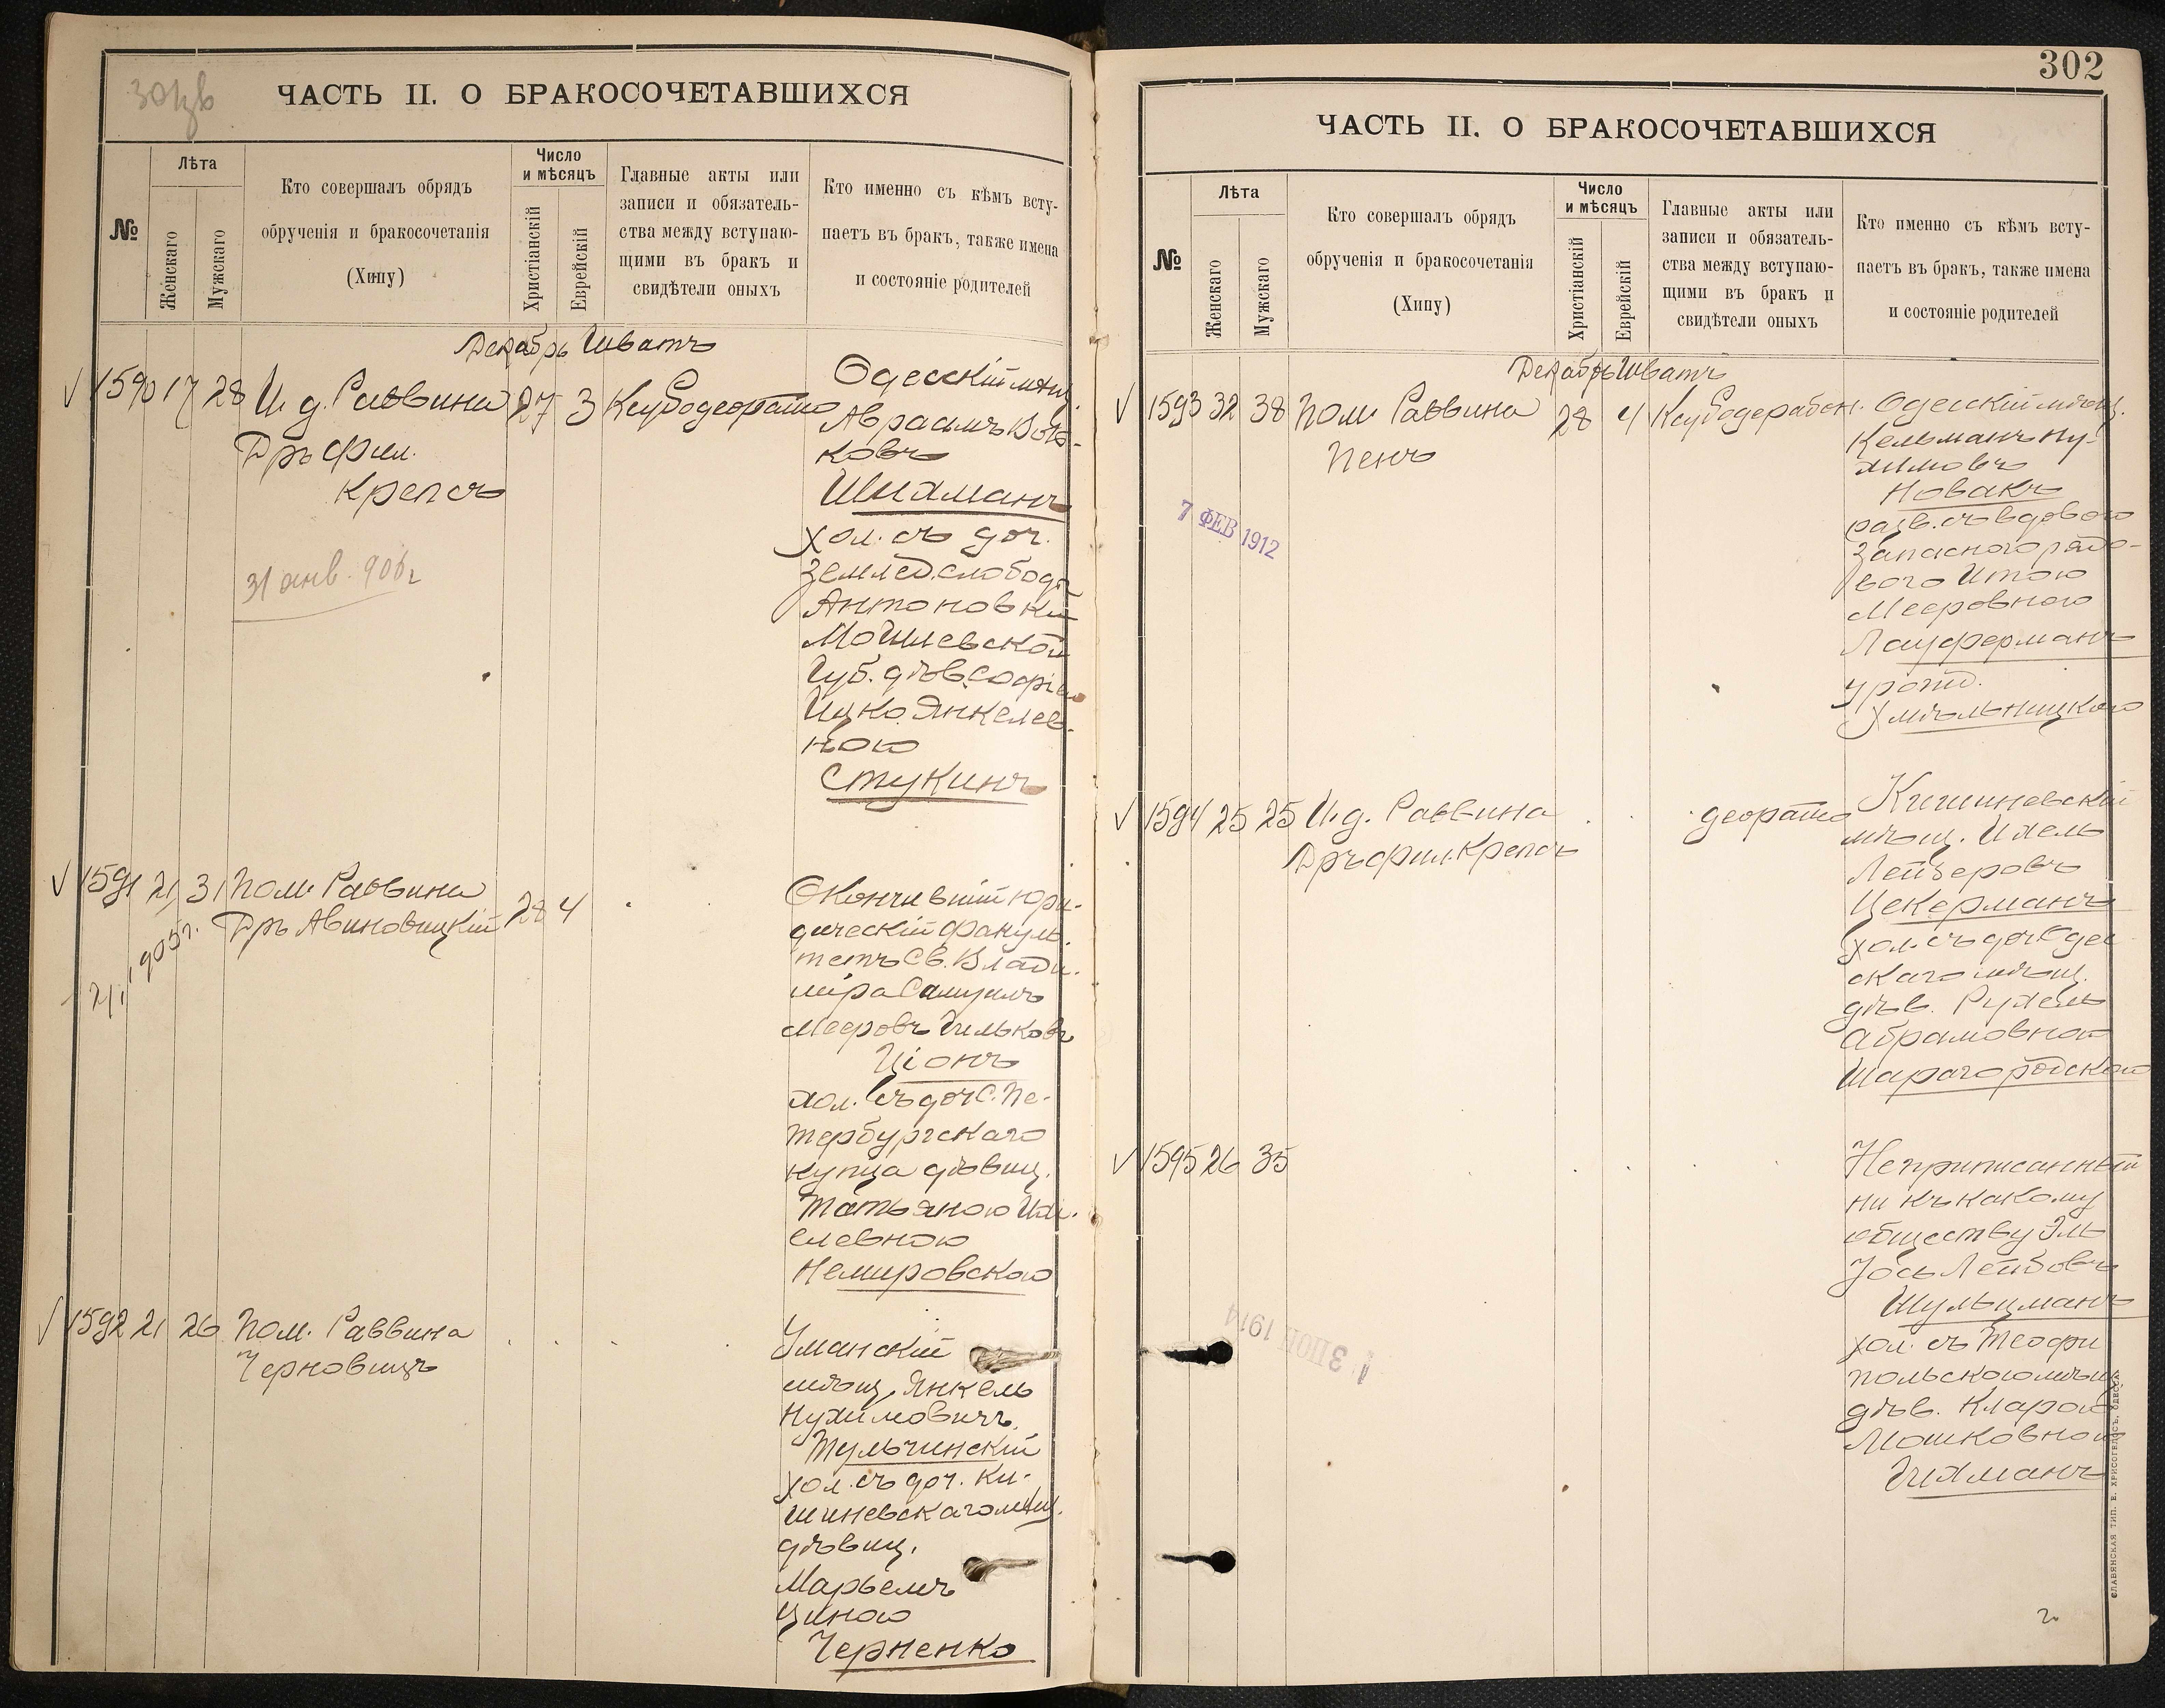 ЧАСТЬ II. О БРАКОСОЧЕТАВШИХСЯ
№
Лѣта
Женскаго
Мужскаго
Кто совершалъ обрядъ
обрученія и бракосочетанія
(Хипу)
Число
и мѣсяцъ
Христіанскій
Еврейскій
Главные акты или
записи и обязатель-
ства между вступаю-
щими въ бракъ и
свидѣтели оныхъ
Кто именно съ кѣмъ всту-
паетъ въ бракъ, также имена
и состояніе родителей
Декабрь Шватъ
1590 17 28 И. д. Раввина 27 3
Дръ фил.
Крепсъ
31 янв. 906г
Одесскій мѣщ.
Авраамъ Вол-
ковъ
Шихманъ
хол. съ доч.
Землед. слободы
Антоновки
Могилевской
Губ. дѣв. Софіею
Ицко Янкелев-
ною
Стукинъ
1591 21 31 Пом. Раввина
Дръ Авиновицкій 28 4
905г.
Окончившій Юри-
дическій факуль-
тетъ Св. Влади-
міра Самуилъ
Мееровъ Гильковъ
Ціонъ
хол. съ доч С. Пе-
тербургскаго
купца дѣвиц.
Татьяною Ихи-
елевною
Немировскою
1592 21 26 Пом. Раввина
Черновицъ
Уманскій
мѣщ. Янкель
Нухимовичъ
Тульчинскій
хол. съ доч. Ки-
шиневскаго мѣщ.
дѣвиц.
Марьемъ
Циною
Черненко
302
ЧАСТЬ II. О БРАКОСОЧЕТАВШИХСЯ
№
Лѣта
Женскаго
Мужскаго
Кто совершалъ обрядъ
обрученія и бракосочетанія
(Хипу)
Число
и мѣсяцъ
Христіанскій
Еврейскій
Главные акты или
записи и обязатель-
ства между вступаю-
щими въ бракъ и
свидѣтели оныхъ
Кто именно съ кѣмъ всту-
паетъ въ бракъ, также имена
и состояніе родителей
Декабрь Шватъ
1593 32 38 Пом. Раввина 28 4
Пенъ
7 ФЕВ 1912
Одесскій мѣщ.
Кельманъ Ну-
химовъ
Новакъ
разв. съ вдовою
Запасного рядо-
вого Итою
Мееровною
Лауферманъ
урожд.
Хмѣльницкою
1594 25 25 И. д. Раввина
Дръ фил. Крепсъ
Кишиневскій
мѣщ. Ихель
Лейзеровъ
Цекерманъ
хол. съ доч Одес
скаго мѣщ.
дѣв. Рухель
Абрамовною
Шарагородскою
1595 26 35
Неприписанный
ни къ какому
обществу Эль
Іось Лейбовъ
Шульцманъ
хол. съ Теофи
польскою мѣщ
дѣв. Кларою
Мошковною
Гихманъ
СЛАВЯНСКАЯ ТИП. Е. ХРИСОГЕЛОСЪ, ОДЕССА.